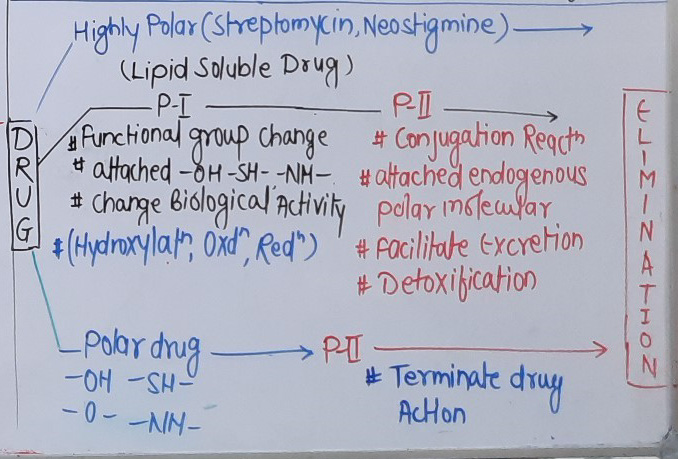 Highly Polar (Streptomycin, Neostigmine)
(Lipid Soluble Drug)
P-I
P-II
DRUG
# Functional group change
# attached -OH -SH- -NH-
# change Biological Activity
# (Hydroxylatⁿ, Oxdⁿ, Redⁿ)
# Conjugation Reactn
# attached endogenous
polar molecular
# Facilitate Excretion
# Detoxification
ELIMINATION
Polar drug
P-II
-OH -SH-
-O- -NH-
# Terminate drug
Action